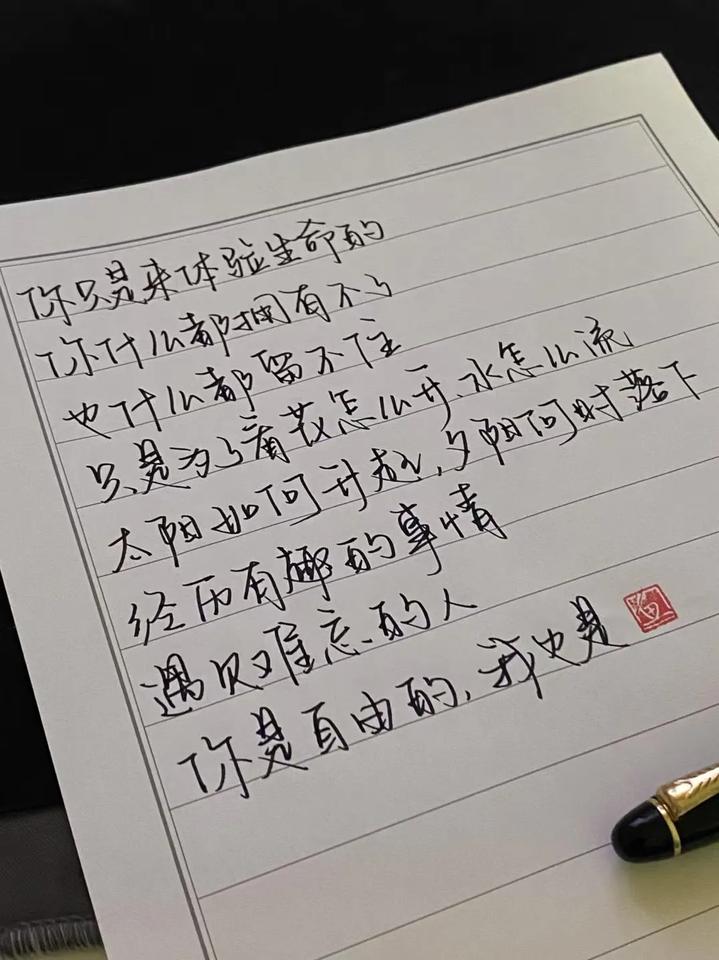 你只是来体验生命的
你什么都拥有不了
也什么都留不住
只是为了看花怎么开,水怎么流
太阳如何升起,夕阳何时落下
经历有趣的事情
遇见难忘的人
你是自由的,我也是